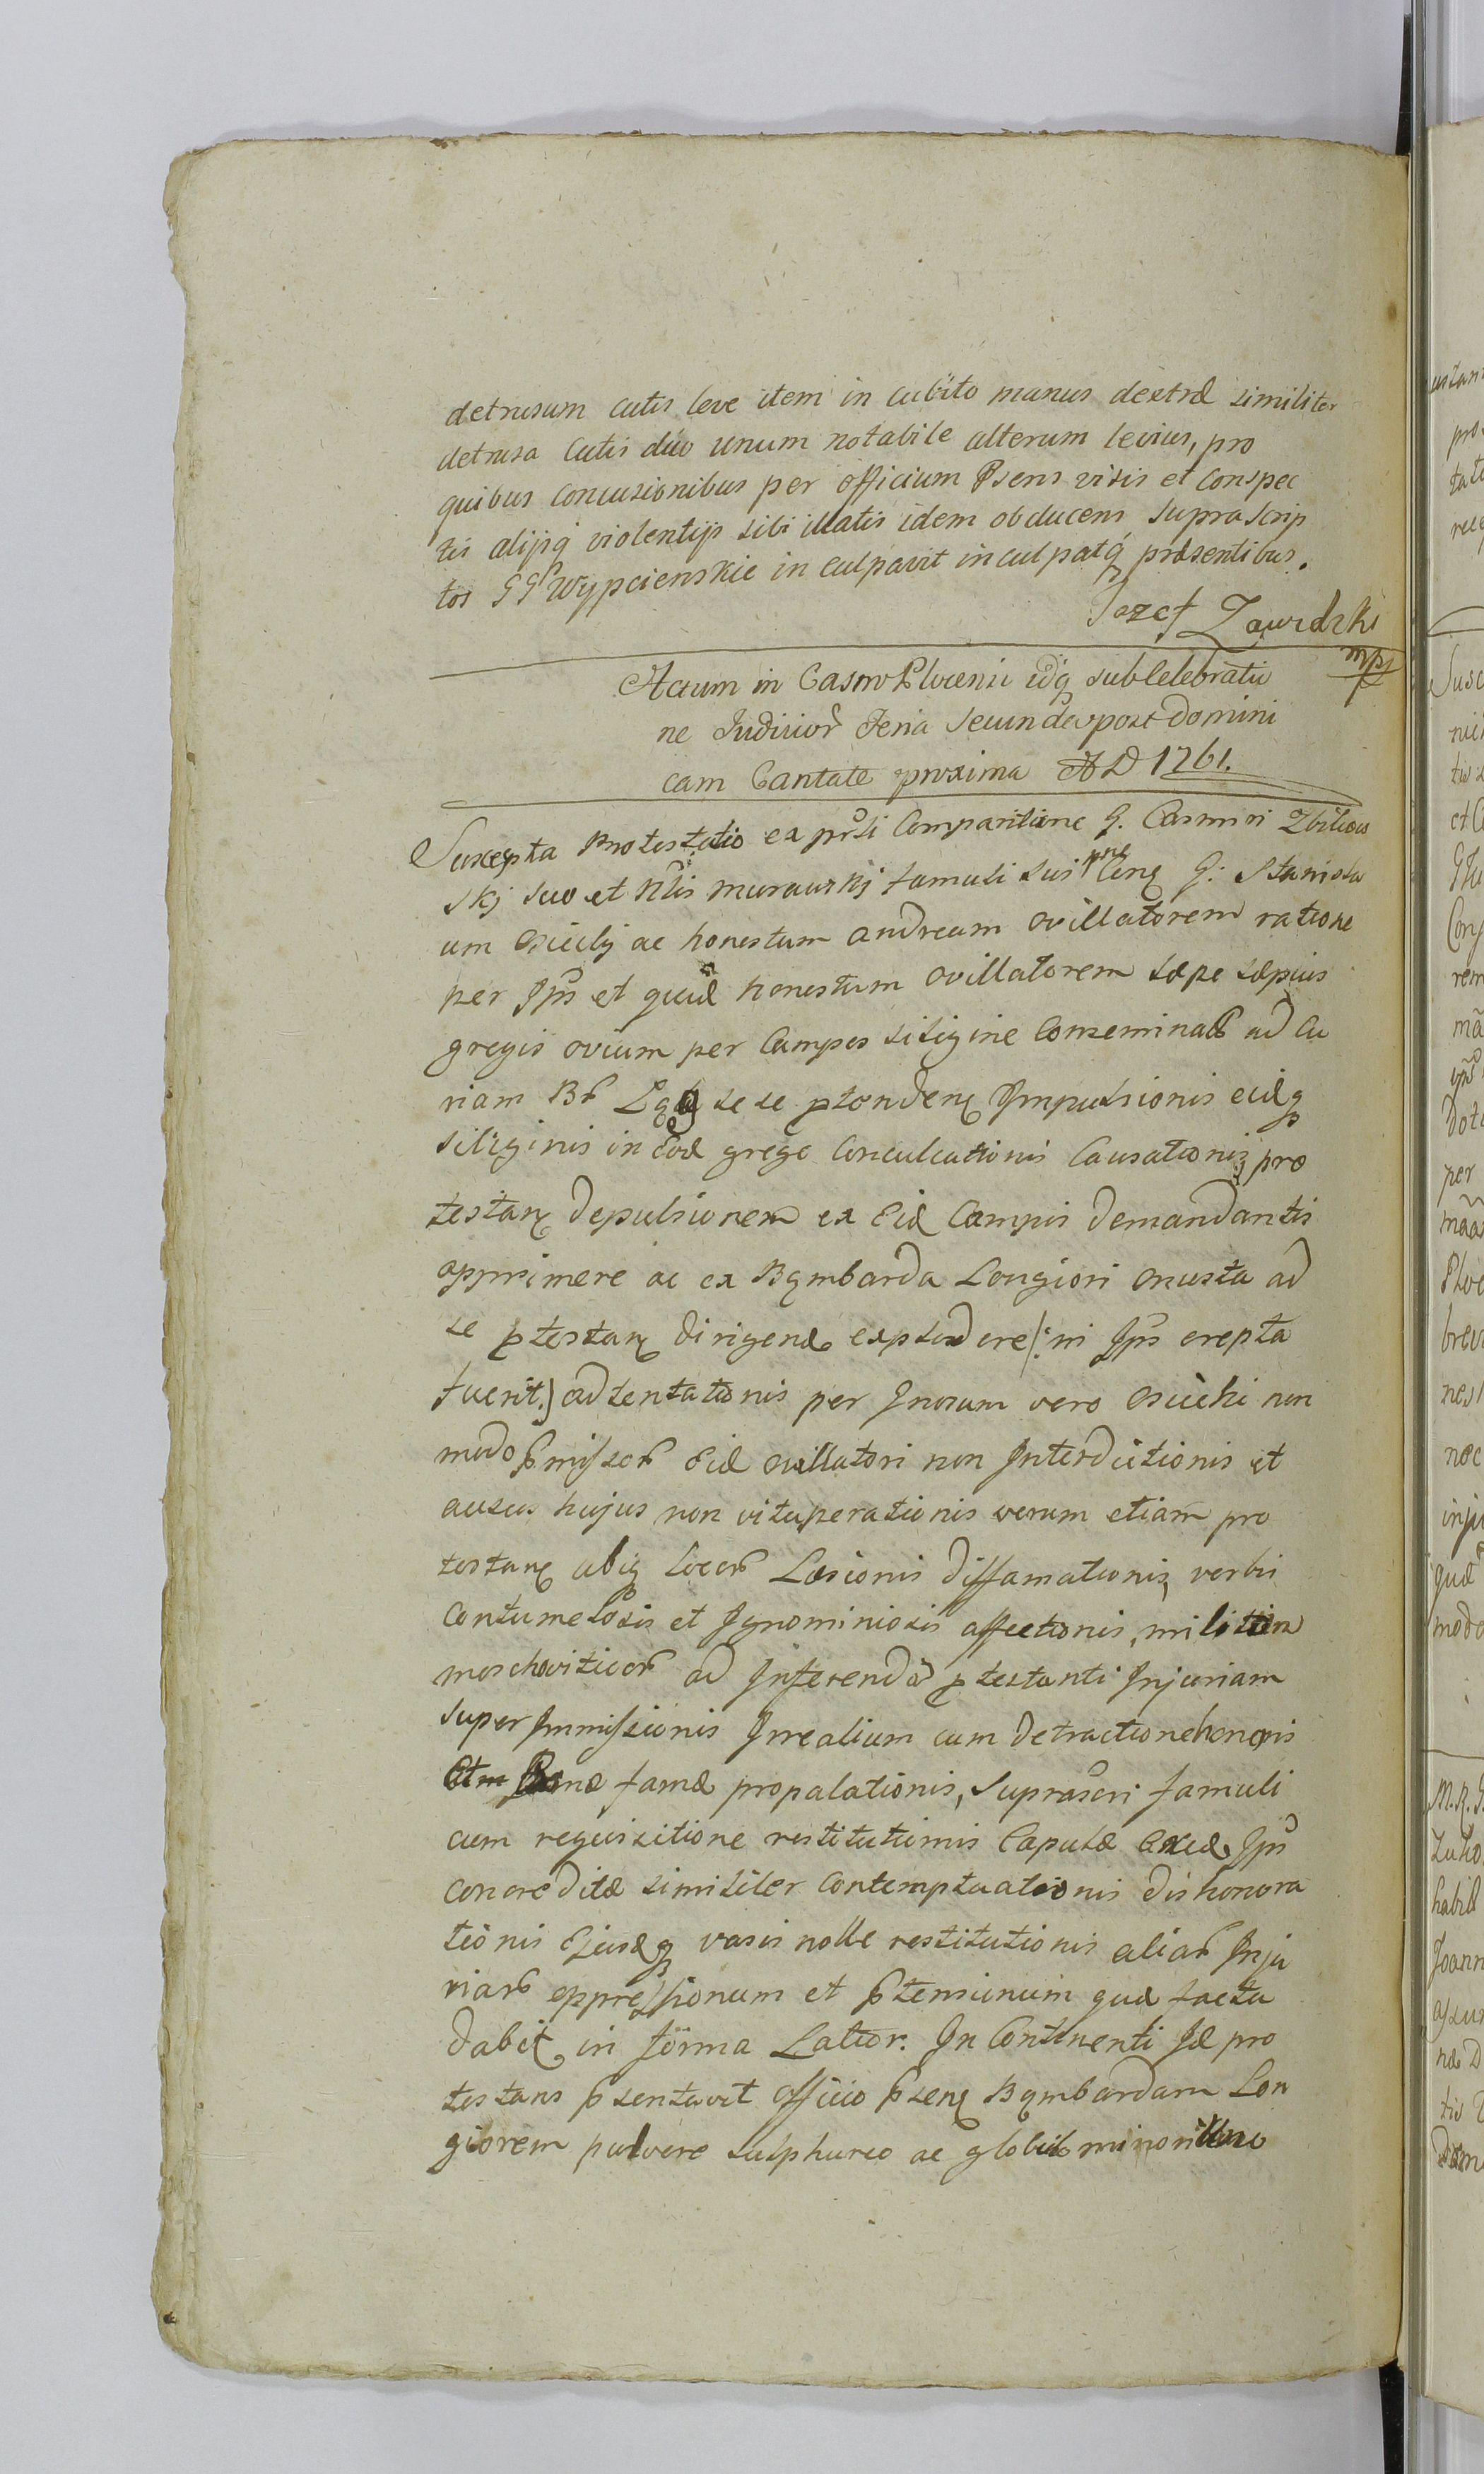 detrusum cutis leve item in cubito manus dextræ similiter
detrusa cutis duo unum notabile alterum levius, pro
quibus concusionibus per officium Psens visis et conspec
tis alijsq violentijs sibi illatis idem obducens suprascrip
tos GG Wypcienskie inculpavit inculpatq præsentibus.
Jozef Zawidzki
mpp
Actum in Castro Plocensi idq sub Celebratio
ne Judicior Feria Secunda post Domini
cam Cantate proxima AD 1761.
Suscepta Protestatio ex prsti Comparitione G. Casimiri Zbikows
skj suo et Nlis murawskj famuli sui nne Cong G: Stanisla
um Osiecky ac honestum andream ovillatorem ratione
per Ips et quid honestum ovillatorem sæpe sæpius
gregis ovium per Campos siligine Conseminatos ad Cu
riam se se ptendeng Impulsionis eidq
siliginis in Eod grege Conculcationis Causationis, pro
testang depulsionem ex Eid Campis demandantis
opprimere ac ex Bombarda Longiori onusta ad
se ptestang dirigend explodere /: ni Ips erepta
fuerit :/ adtentationis per Gnosum vero Osiecki non
modo pmissor Eid ovillatori non Interdictionis et
ausus hujus non vituperationis verum etiam pro
testang ubiq locor Læsionis diffamationis, verbis
Contumelosis et Ignominiosis affectionis, militum
moschoviticor ad Inferendã ptestanti Injuriam
super Immissionis Irrealium cum detractione honoris
Bonæ famæ propalationis, Suprascri famuli
cum requisitione restitutionis Capsulæ Ips
concreditæ similiter Contemptuationis dishonora
tionis Ejusdq vasis nolle restitutionis aliar Inju
riar oppressionum et ptensionum quæ facta
dabit in forma Latior. In Continenti Id pro
testans psentavit officio pseng Bombardam Lon
giorem pulvere sulphureo ac globis minoribus